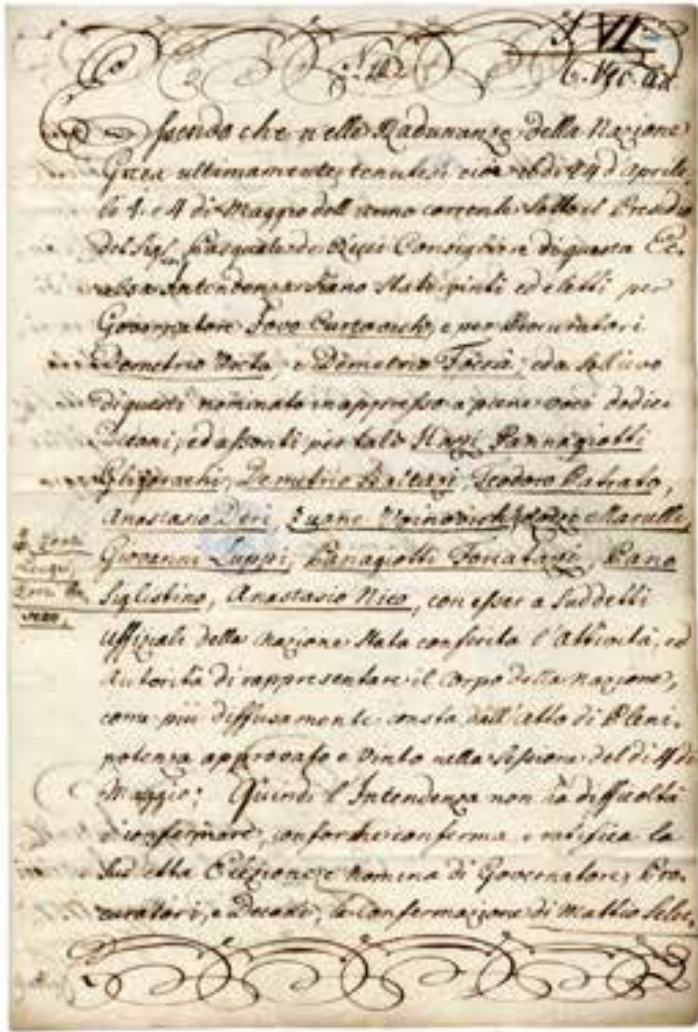 VI
ssendo che nelle Radunanze della Nazione
Greca ultimamente tenutesi cioè di 24 d'Aprile,
li 1. e 4 di Maggio dell'anno corrente sotto il Presidio
del Sigr. Pasquale de Ricci Consigliere di questa Ec.
celsa Intendenza siano stati vinti ed eletti per
Governatore Jovo Curtovich, e per Procuratori
Demetrio, e Demetrio; ed a solievo
di questi nominato in appresso a piene voci dodici
Decani, ed assonti per tali Hagi Pannagiotti
Ghigorachi, Demetrio, Teodoro Patrato,
Anastasio, Zuane Vоinovich, Marulli,
Giovanni Luppi, Panagiotti, Pano
Siglistino, Anastasio Nico, con esser a suddetti
Uffiziali della Nazione stata conferita l'attività, ed
Autorità di rappresentare il Corpo della Nazione,
come più diffusamente consta dall'Atto di Pleni.
potenza approvato e vinto nella sessione del dì 4 di
Maggio: Quindi l'Intendenza non ha difficoltà
di confermare, conforme conferma, e ratifica la
suddetta Elezione e nomina di Governatore, Pro.
curatori, e Decani, la confermazione di Mattio